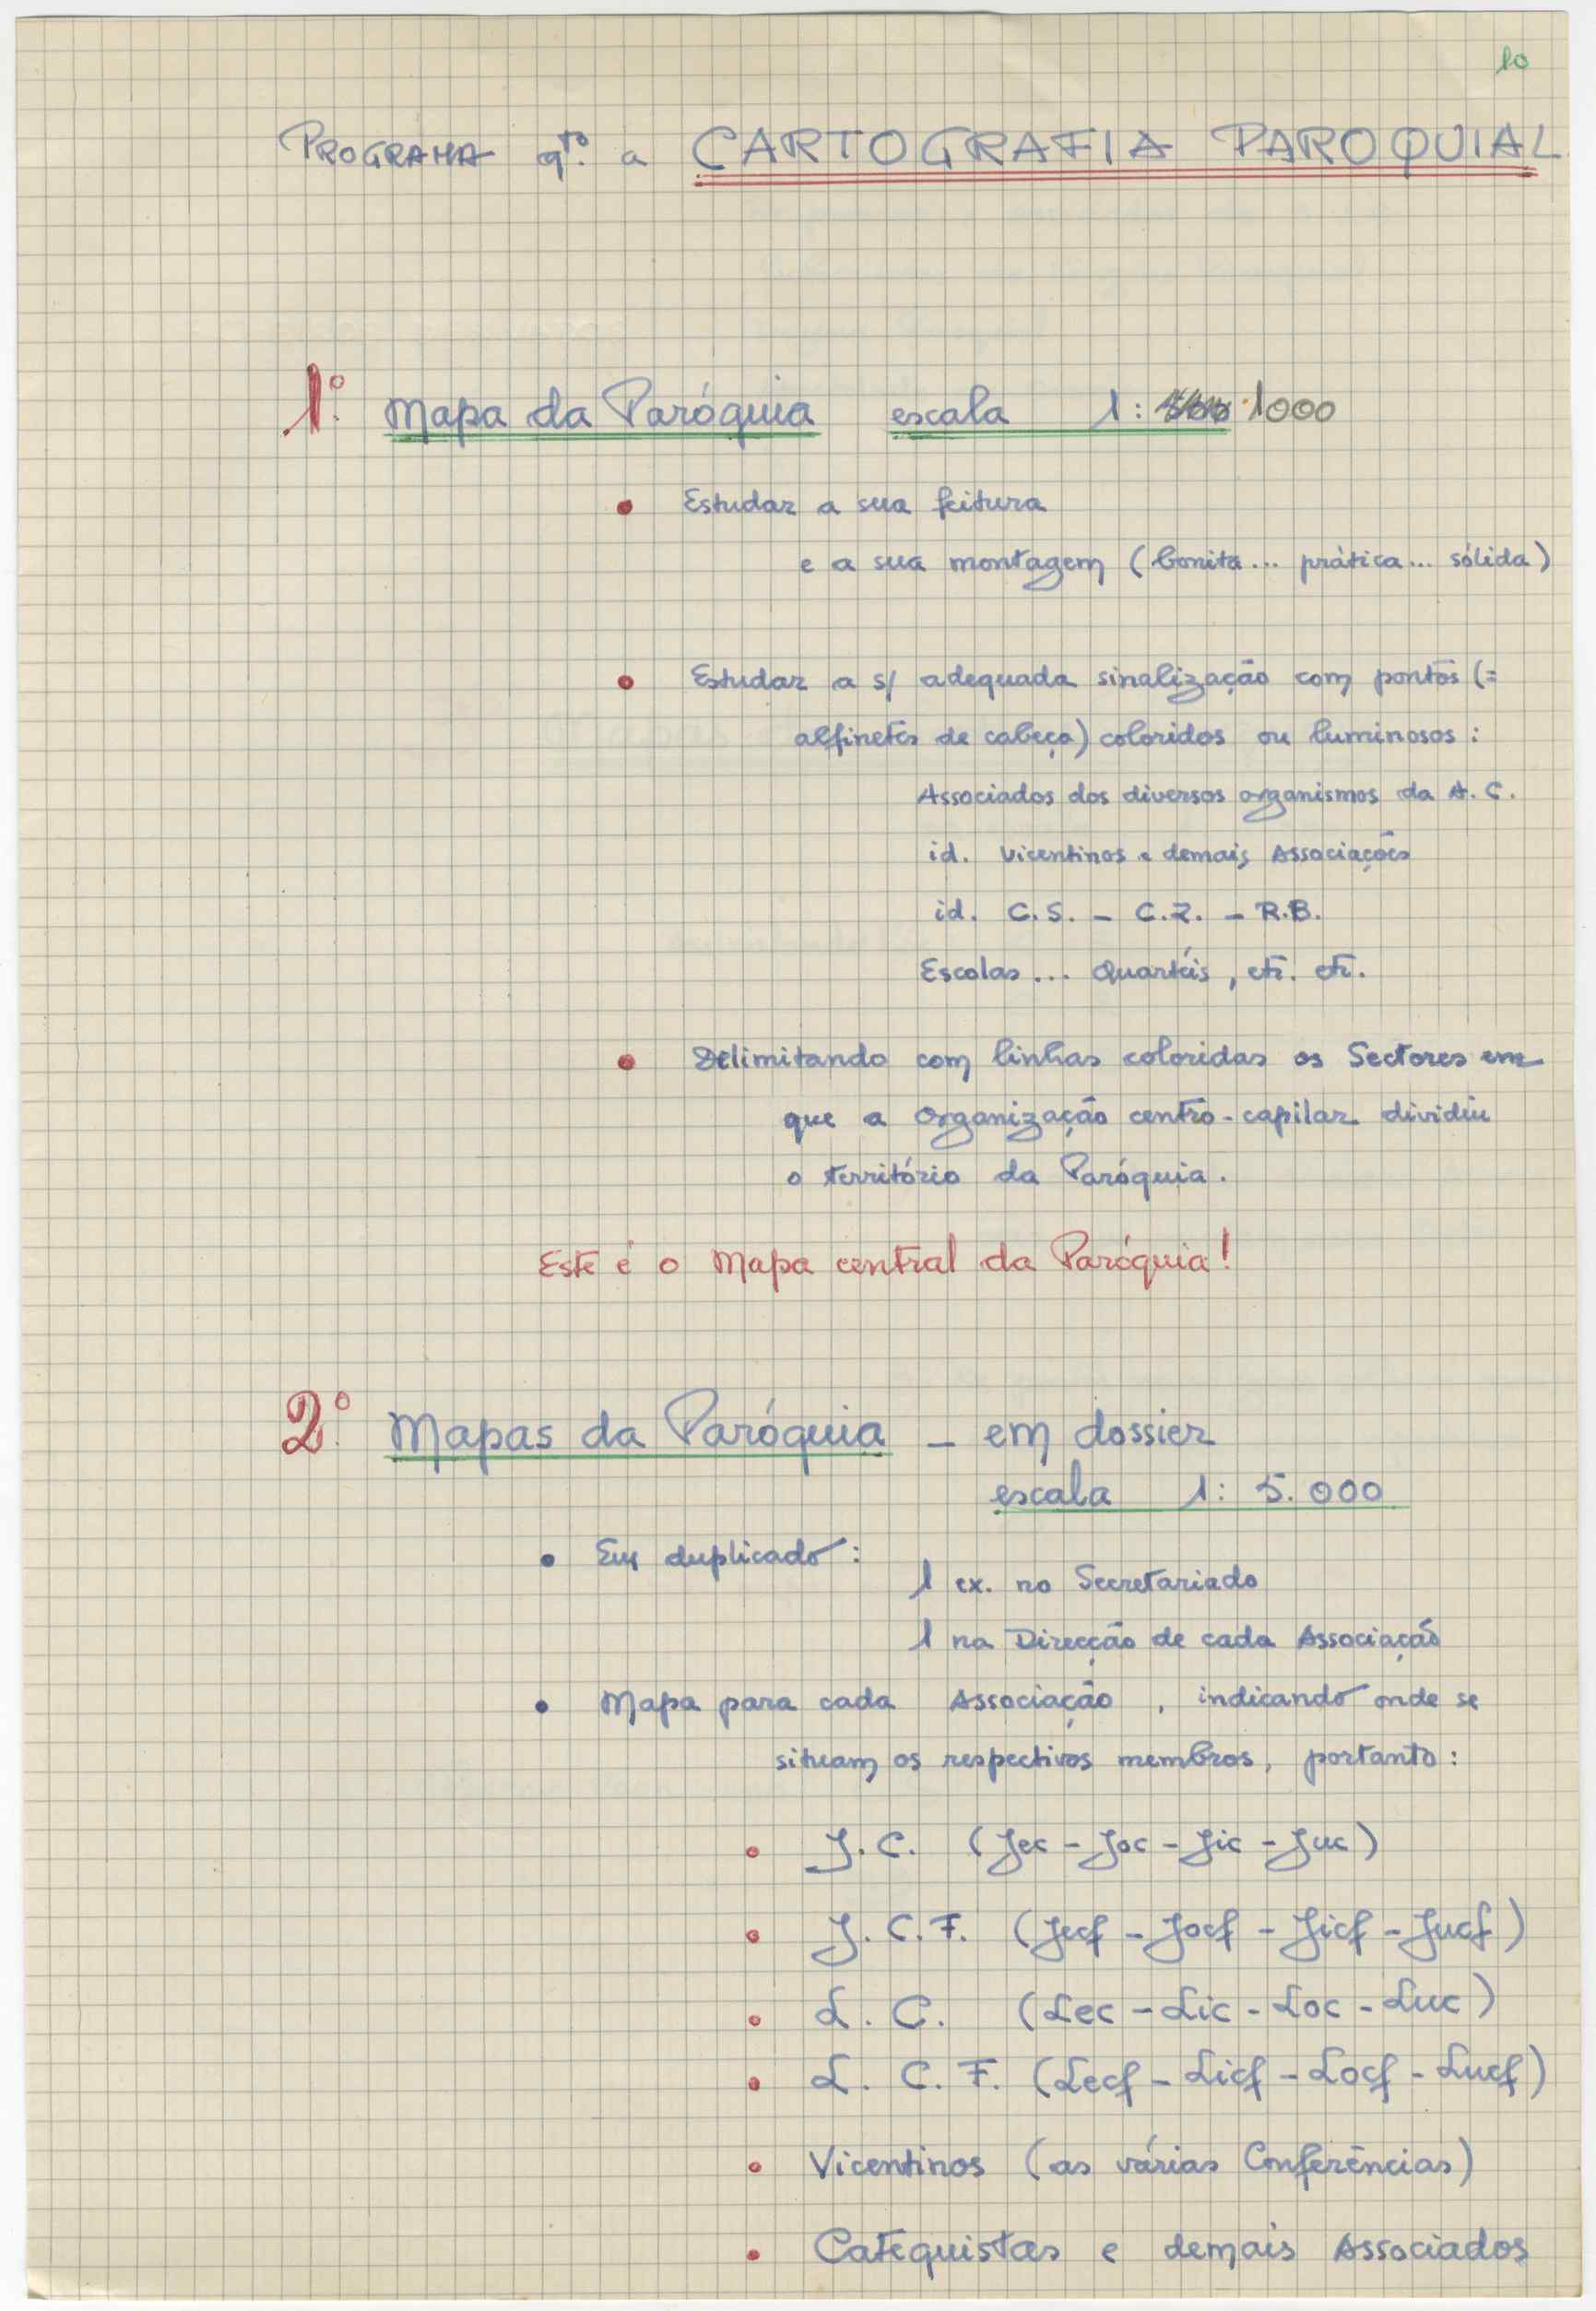 10
PROGRAMA qto. a CARTOGRAFIA PAROQUIAL
1º. Mapa da Paróquia escala 1: 1000
• Estudar a sua feitura
e a sua montagem (bonita... prática... sólida)
• Estudar a s/ adequada sinalização com pontos (=
alfinetes de cabeça) coloridos ou luminosos:
Associados dos diversos organismos da A. C.
id. Vicentinos e demais Associações
id. C.S. - C.R. - R.B.
Escolas... Quartéis, etc. etc.
• Delimitando com linhas coloridas os Sectores em
que a Organização centro-capilar dividiu
o território da Paróquia.
Este é o Mapa central da Paróquia!
2º. Mapas da Paróquia - em dossier
escala 1: 5.000
• Em duplicado:
1 ex. no Secretariado
1 na Direcção de cada Associação
• Mapa para cada Associação, indicando onde se
situam os respectivos membros, portanto:
• J.C. (Jec - Joc - Jic - Juc)
• J.C.F. (Jecf - Jocf - Jicf - Jucf)
• L.C. (Lec - Lic - Loc - Luc)
• L.C.F. (Lecf - Licf - Locf - Lucf)
• Vicentinos (as várias Conferências)
• Catequistas e demais Associados